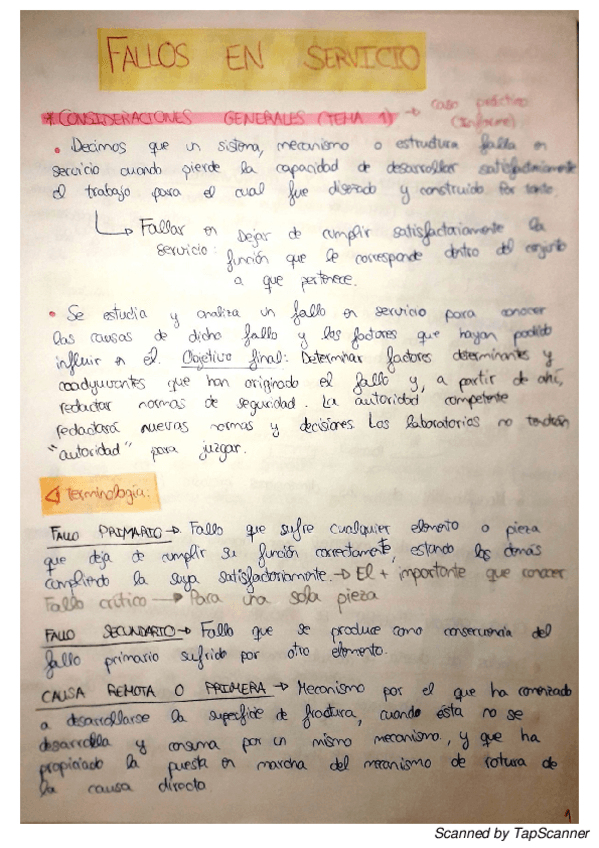 FALLOS EN SERVICIO
* CONSIDERACIONES GENERALES (TEMA 1) → caso práctico
(Informe)
• Decimos que un sistema, mecanismo o estructura falla en
servicio cuando pierde la capacidad de desarrollar satisfactoriamente
el trabajo para el cual fue diseñado y construido. Por tanto
↳ Fallar en Dejar de cumplir satisfactoriamente la
servicio: función que le corresponde dentro del conjunto
a que pertenece.
• Se estudia y analiza un fallo en servicio para conocer
las causas de dicho fallo y los factores que hayan podido
influir en el. Objetivo final: Determinar factores determinantes y
coadyuvantes que han originado el fallo y, a partir de ahí,
redactar normas de seguridad. La autoridad competente
redactará nuevas normas y decisiones. Los laboratorios no tendrán
"autoridad" para juzgar.
◁ Terminología:
FALLO PRIMARIO → Fallo que sufre cualquier elemento o pieza
que deja de cumplir su función correctamente, estando los demás
cumpliendo la suya satisfactoriamente. → El + importante que conocer
Fallo crítico → Para una sola pieza
FALLO SECUNDARIO → Fallo que se produce como consecuencia del
fallo primario sufrido por otro elemento.
CAUSA REMOTA O PRIMERA → Mecanismo por el que ha comenzado
a desarrollarse la superficie de fractura, cuando ésta no se
desarrolla y consuma por un mismo mecanismo, y que ha
propiciado la puesta en marcha del mecanismo de rotura de
la causa directa
1
Scanned by TapScanner